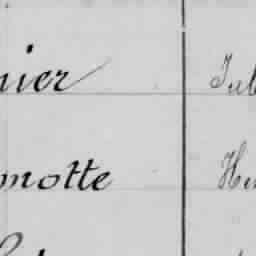 nier Jul
motte Hen